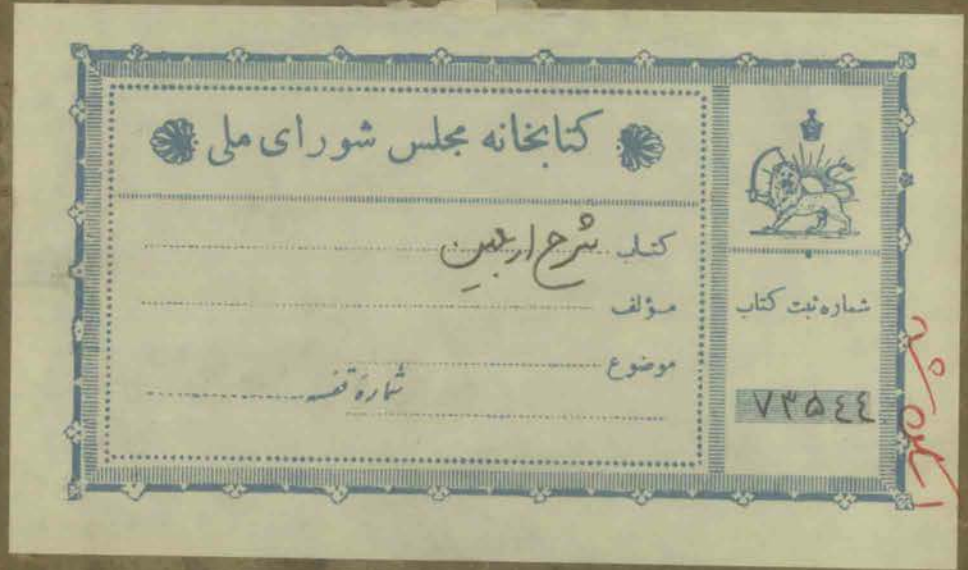 کتابخانه مجلس شورای ملی
کتاب شرح اربعین
مؤلف
موضوع
شمارهٔ قفسه
شماره ثبت کتاب
۷۳۵٤٤
اسکن شد